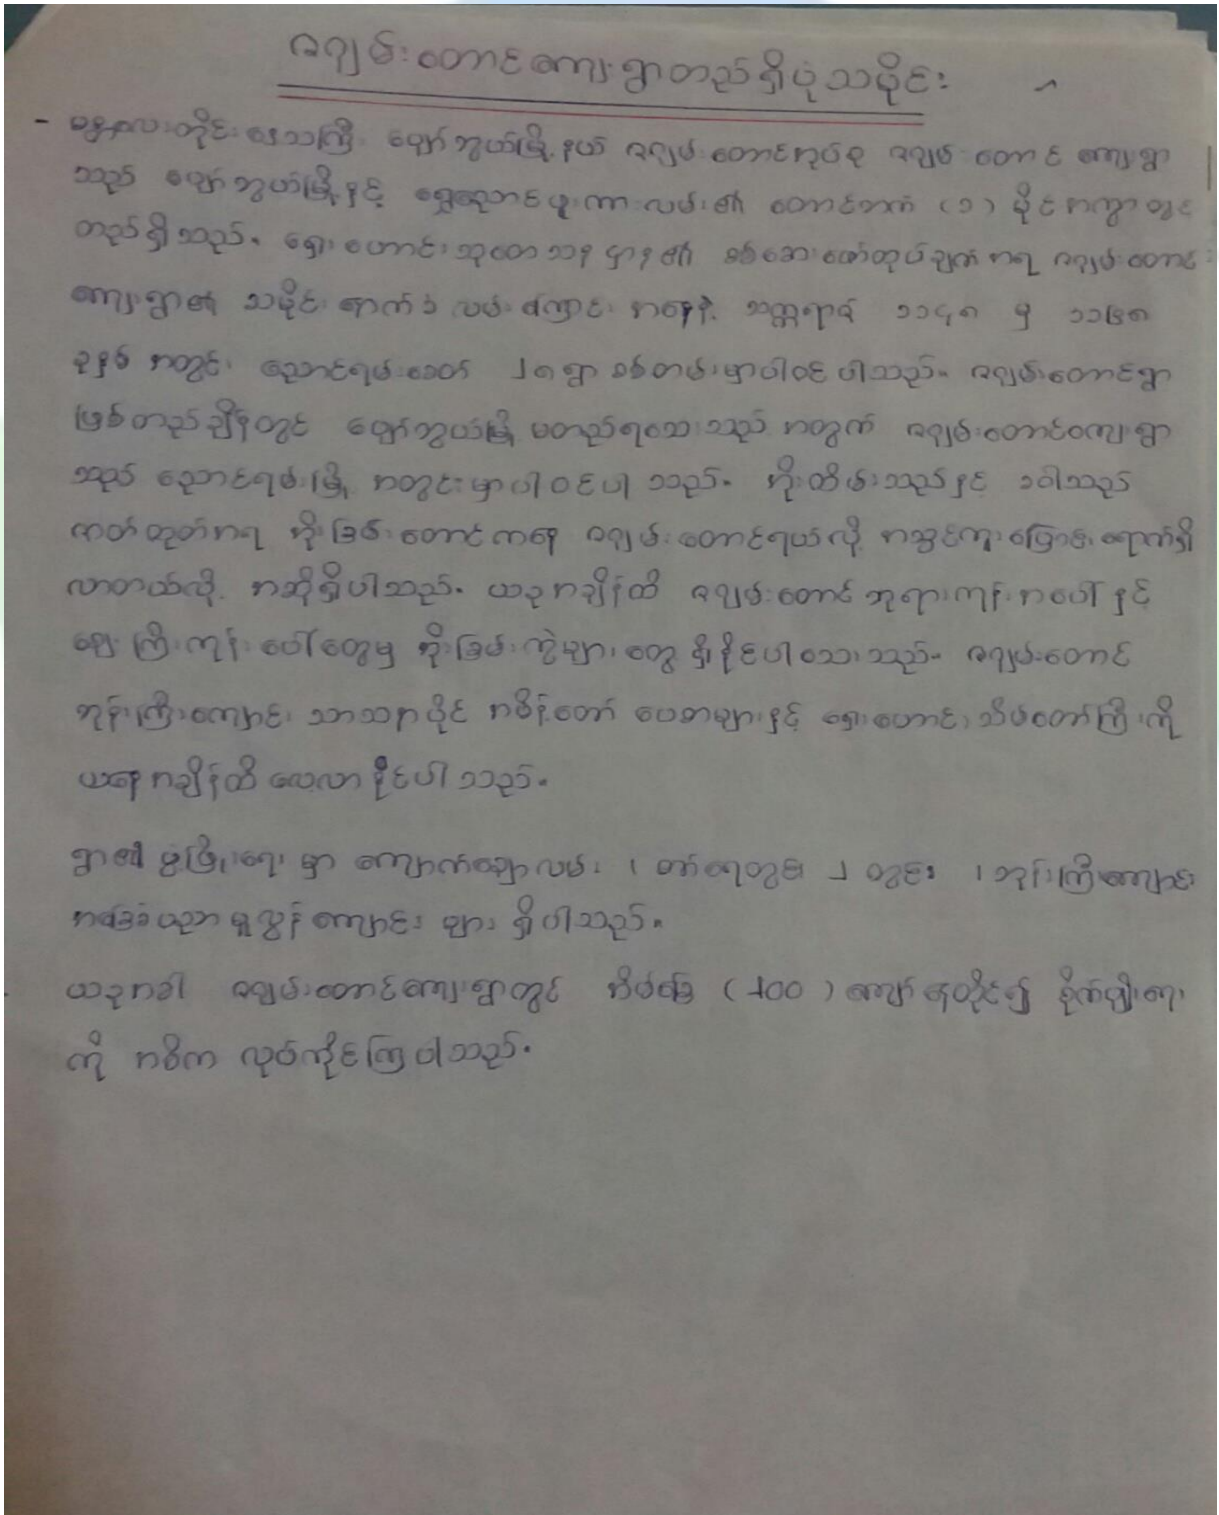 ဇဂျမ်းတောင်ကျေးရွာတည်ရှိပုံသမိုင်း
- မန္တလေးတိုင်းဒေသကြီး ပျော်ဘွယ်မြို့နယ် ဇဂျမ်းတောင်အုပ်စု ဇဂျမ်းတောင် ကျေးရွာ
သည် ပျော်ဘွယ်မြို့နှင့် ရွှေညောင်ဖူးကားလမ်း၏ တောင်ဘက် (၁) မိုင်အကွာတွင်
တည်ရှိသည်။ ရှေးဟောင်းသုတေသနဌာန၏ စစ်ဆေးဖော်ထုတ်ချက်အရ ဇဂျမ်းတောင်
ကျေးရွာ၏ သမိုင်းရောက်ခဲ့လမ်းကြောင်းအနေနဲ့ သက္ကရာဇ် ၁၁၄၈ မှ ၁၁၆၈
ခုနှစ်အတွင်း ညောင်ရမ်းခေတ် ၂၈ ရွာစစ်တမ်းမှာပါဝင်ပါသည်။ ဇဂျမ်းတောင်ရွာ
ဖြစ်တည်ချိန်တွင် ပျော်ဘွယ်မြို့ မတည်ရသေးသည့်အတွက် ဇဂျမ်းတောင်ကျေးရွာ
သည် ညောင်ရမ်းမြို့ အတွင်းမှာပါဝင်ပါသည်။ အိုးထိမ်းသည်နှင့် ခဝါသည်
ဇာတ်ထုတ်အရ အိုးခြမ်းတောင်ကနေ ဇဂျမ်းတောင်ရယ်လို့ အသွင်ကူးပြောင်းရောက်ရှိ
လာတယ်လို့ အဆိုရှိပါသည်။ ယခုအချိန်ထိ ဇဂျမ်းတောင်ဘုရားကုန်းအပေါ် နှင့်
ဈေးကြီးကုန်းပေါ်တွေမှ အိုးခြမ်းကွဲများတွေ့ရှိနိုင်ပါသေးသည်။ ဇဂျမ်းတောင်
ဘုန်းကြီးကျောင်း သာသနာပိုင် အမိန့်တော် ပေစာများနှင့် ရှေးဟောင်းသိမ်တော်ကြီးကို
ယနေ့အချိန်ထိ လေ့လာနိုင်ပါသည်။
ရွာ၏ ဖွံ့ဖြိုးရေးမှာ ကျောက်ချောလမ်း ၊ စက်ရေတွင်း ၂ တွင်း ၊ ဘုန်းကြီးကျောင်း
အခြေခံပညာမူလွန်ကျောင်းများ ရှိပါသည်။
ယခုအခါ ဇဂျမ်းတောင်ကျေးရွာတွင် အိမ်ခြေ (၂၀၀) ကျော်နေထိုင်၍ စိုက်ပျိုးရေး
ကို အဓိက လုပ်ကိုင်ကြပါသည်။